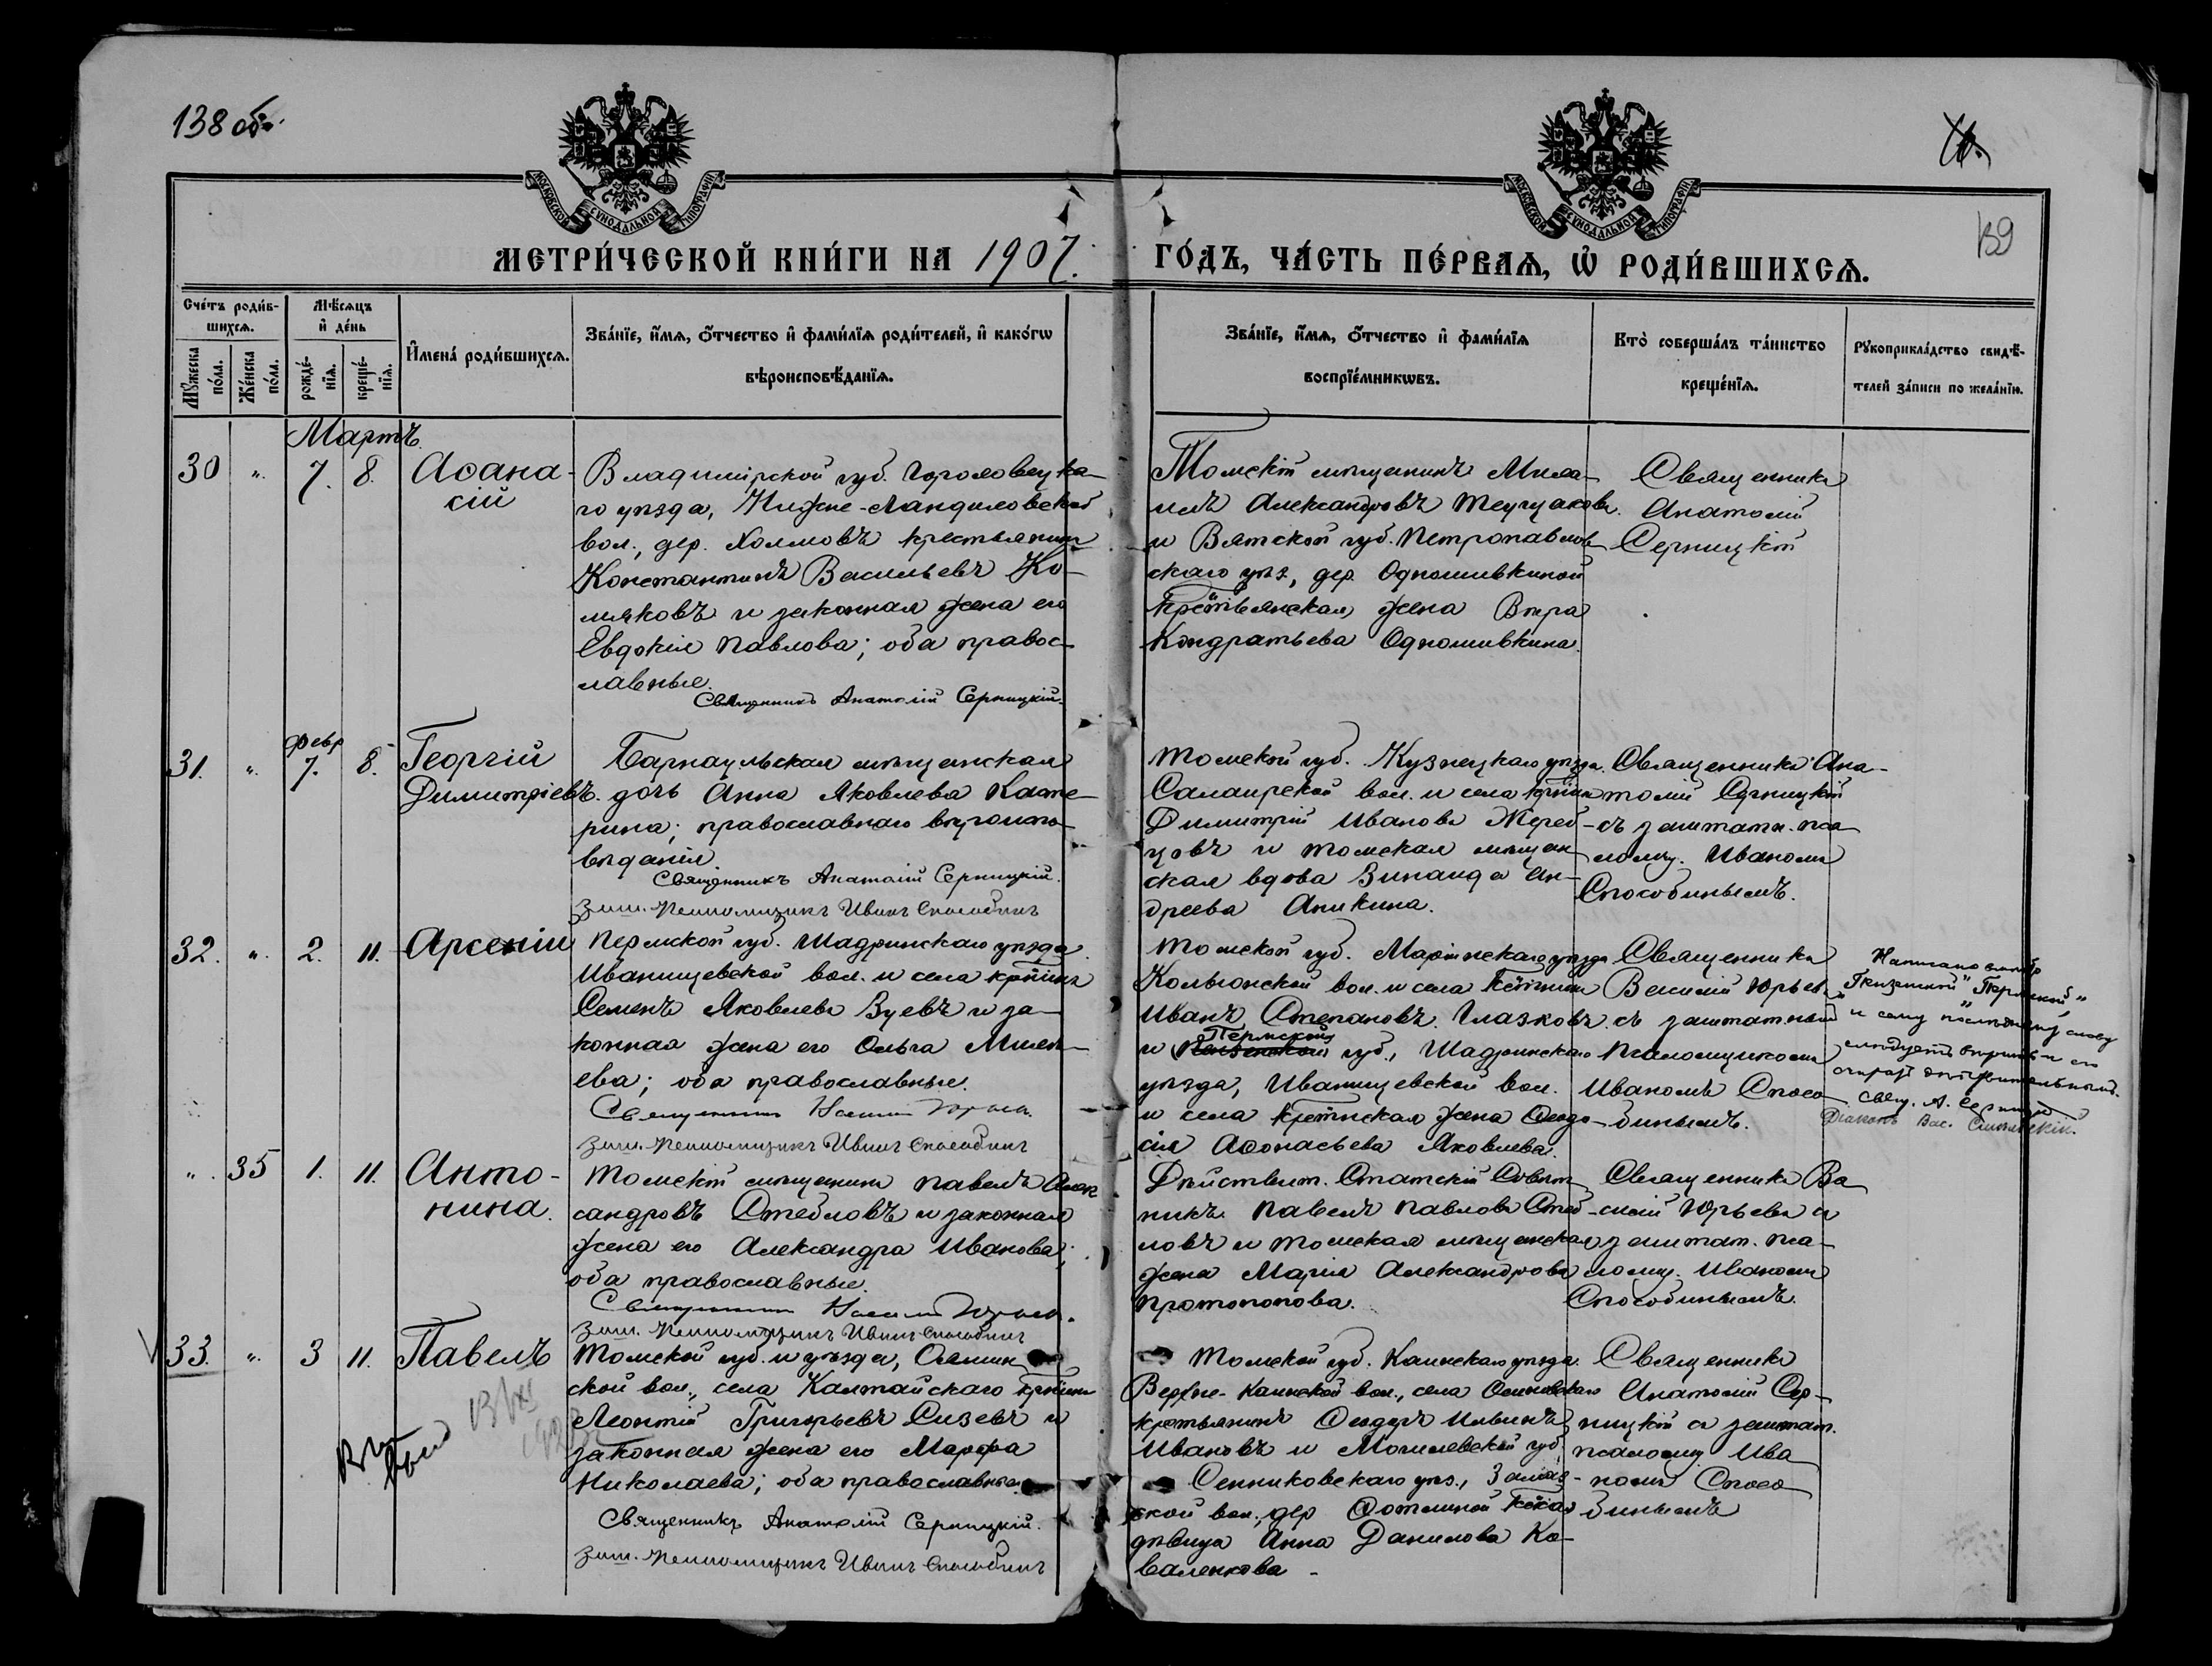 138 об.
139
МОСКОВСКОЙ СѴНОДАЛЬНОЙ ТИПОГРАФІИ
МОСКОВСКОЙ СѴНОДАЛЬНОЙ ТИПОГРАФІИ
МЕТРИ́ЧЕСКОЙ КНИ́ГИ НА 1907.
ГО́ДЪ, ЧА́СТЬ ПЕ́РВАѦ, Ѡ҆ РОДИ́ВШИХСѦ.
Сче́тъ роди́в-
шихсѧ.
Мꙋ́жеска
по́ла.
Же́нска
по́ла.
Мѣ́сѧцъ
и҆ де́нь
рожде́-
нїѧ.
креще́-
нїѧ.
И҆мена̀ роди́вшихсѧ.
Зва́нїе, и҆́мѧ, ѻ҆́тчество и҆ фами́лїѧ роди́телей, и҆ како́гѡ
вѣроисповѣ́данїѧ.
Зва́нїе, и҆́мѧ, ѻ҆́тчество и҆ фами́лїѧ
воспрїе́мникѡвъ.
Кто̀ соверша́лъ та́инство
креще́нїѧ.
Рꙋкоприкла́дство свидѣ́-
телей за́писи по жела́нїю.
Мартъ.
30 „ 7. 8. Аѳана-
сій
Владимірской губ. Гороховецка-
го уѣзда, Нижне-Ландиховской
вол., дер. Холмовъ крестьянинъ
Константинъ Васильевъ Хо-
мяковъ и законная жена его
Евдокія Павлова; оба правос-
лавные.
Священникъ Анатолій Серницкій.
Томскій мѣщанинъ Миха-
илъ Александровъ
и Вятской губ. Петропавлов-
скаго уѣз., дер. Одношивкиной
крестьянская жена Вѣра
Кондратьева Одношивкина.
Священникъ
Анатолій
Серницкій
31. „ февр 7. 8. Георгій
Димитріевъ.
Барнаульская мѣщанская
дочь Анна Яковлева Кате-
рина; православнаго вѣроиспо-
вѣданія.
Священникъ Анатолій Серницкій.
Заш. Псаломщикъ Иванъ Способинъ
Томской губ. Кузнецкаго уѣзда.
Салаирской вол. и села кр-нинъ
Димитрій Ивановъ Жереб-
цовъ и томская мѣщан-
ская вдова Зинаида Ан-
дреева Аникина.
Священникъ Ана-
толій Серницкій
съ заштатн. пса-
ломщ. Иваномъ
Способинымъ.
32. „ 2. 11. Арсеній
Пермской губ. Шадринскаго уѣзда
Иванищевской вол. и села кр-нинъ
Семенъ Яковлевъ Зуевъ и за-
конная жена его Ольга
ева; оба православные.
Священникъ Василій Юрьевъ.
Заш. Псаломщикъ Иванъ Способинъ
Томской губ. Маріинскаго уѣзда
Кольонской вол. и села кр-нинъ
Иванъ Степановъ Глазковъ
Пермской
и Пензенской губ., Шадринскаго
уѣзда, Иванищевской вол.
и села крестьянская жена Ѳеодо-
сія Аѳонасьева Яковлева.
Священникъ
Василій Юрьевъ
съ заштатнымъ
псаломщикомъ
Иваномъ Спосо-
бинымъ.
Написано вмѣсто
„Пензенской“ „Пермской“
и сему послѣднему слову
слѣдуетъ вѣрить и
свящ. А. Серницкій
Діаконъ Вас.
„ 35 1. 11. Анто-
нина.
Томскій мѣщанинъ Павелъ Алек-
сандровъ Стебловъ и законная
жена его Александра Иванова;
оба православные.
Священникъ Василій Юрьевъ.
Заш. Псаломщикъ Иванъ Способинъ
Дѣйствит. Статскій Совѣт-
никъ Павелъ Павловъ Стеб-
ловъ и томская мѣщанская
жена Марія Александрова
Протопопова.
Священникъ Ва-
силій Юрьевъ съ
заштат. пса-
ломщ. Иваномъ
Способинымъ.
33. „ 3 11. Павелъ
Томской губ. и уѣзда,
ской вол., села Калтайскаго кр-нинъ
Леонтій Григорьевъ Сизевъ и
законная жена его Марѳа
Николаева; оба православные.
Священникъ Анатолій Серницкій.
Заш. Псаломщикъ Иванъ Способинъ
Томской губ. Каинскаго уѣзда.
Верхне-Каинской вол., села Осиновскаго
крестьянинъ Ѳеодоръ
Ивановъ и Могилевской губ.
Сенниковскаго уѣз.,
ской вол., дер.
дѣвица Анна Данилова Ко-
валенкова
Священникъ
Анатолій Сер-
ницкій съ заштат.
псаломщ. Ива-
номъ Спосо-
бинымъ